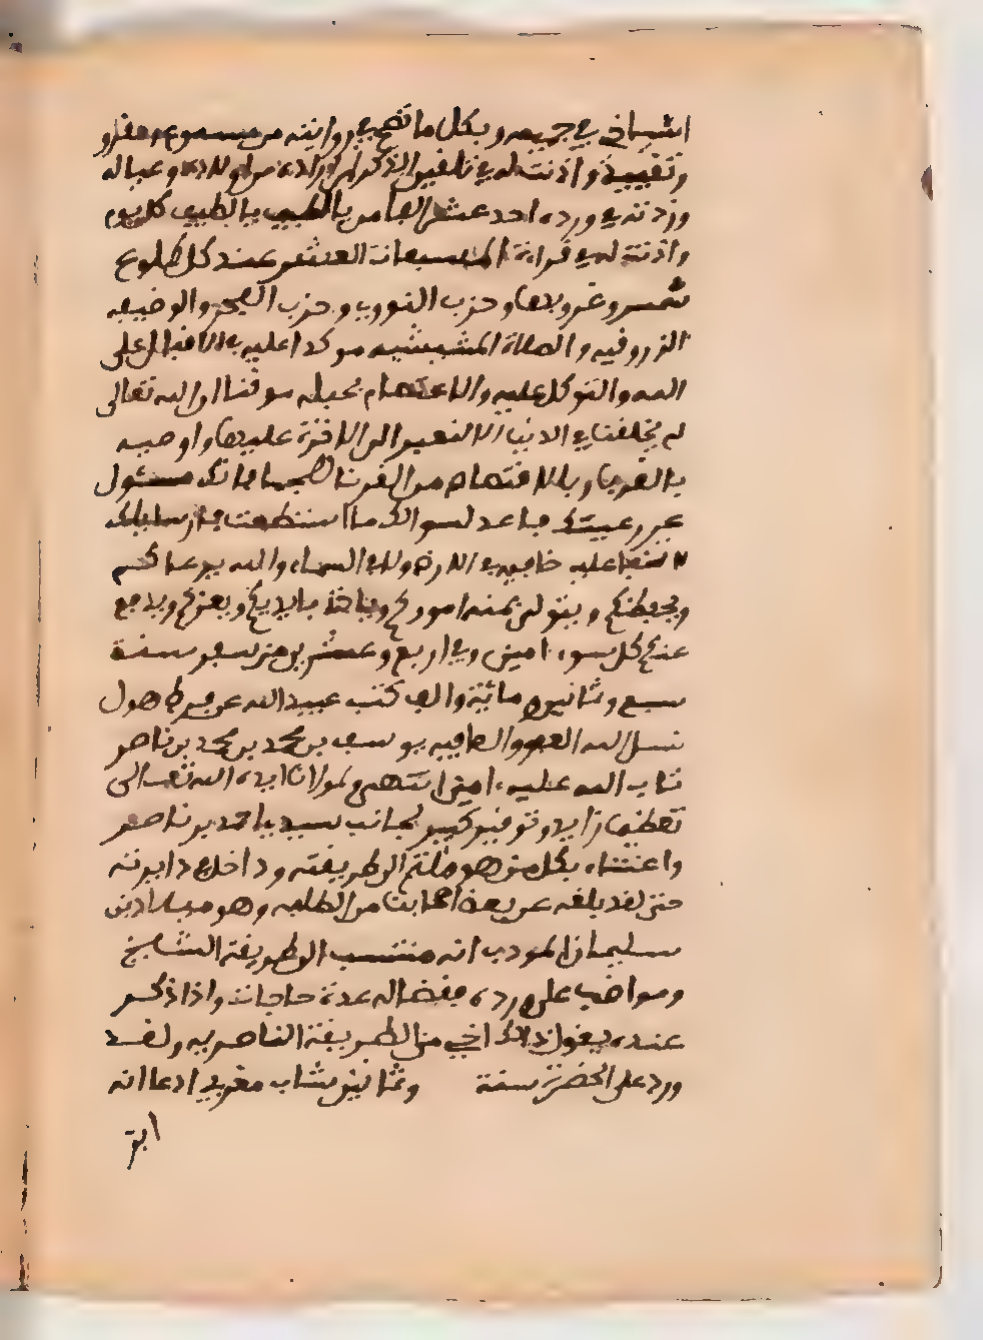 اشياخي في جميعه وبكل ما تصح لي روايته من مسموع ومقرو
وتقييد واذنت له في تلقين الاذكار لمن اراده من اولاده وعياله
وزدته في ورده احد عشر الفا من يا لطيف يا لطيف كل يوم
واذنته في قراءة المسبعات العشر عند كل طلوع
شمس وغروبها وحزب النووي وحزب البحر والوظيفه
الزروقيه والصلاة المشيشيه موكدا عليه بالاقبال على
الله والتوكل عليه والاعتصام بحبله موقنا ان الله تعالى
لم يخلقنا في الدنيا الا لنعبر الى الاخرة عليها واوصيه
بالفقراء وبالاقتصاص من القرنا لجما فانك مسئول
عن رعيتك فاعد لسوالك ما استطعت فان سايلك
لا تخفى عليه خافيه في الارض ولا في السماء والله يرعاكم
ويحفظكم ويتولى بمنه اموركم وياخذ بايديكم ويعزكم ويدفع
عنكم كل سوء امين وفي اربع وعشرين من صفر سنة
سبع وثمانين ومائة والف كتب عبيد الله
نسل الله العفو والعافيه يوسف بن محمد بن محمد بن ناصر
تاب الله عليه امين انتهى ولمولانا ايده الله تعالى
تعظيم زايد وتوقير كبير لجانب سيدي احمد بن ناصر
واعتناء بكل من هو ملتم الى طريقته وداخل في دايرته
حتى لقد بلغه عن بعض اصحابنا من الطلبه وهو
سليمان المودب انه منتسب الى طريقة الشايخ
ومواضب على ورده فقضا له عدة حاجات واذا ذكر
عنده يقول ذلك اخي من الطريقة الناصريه ولقد
ورد على الحضرة سنة وثمانين شاب مغربي ادعا انه
ابن